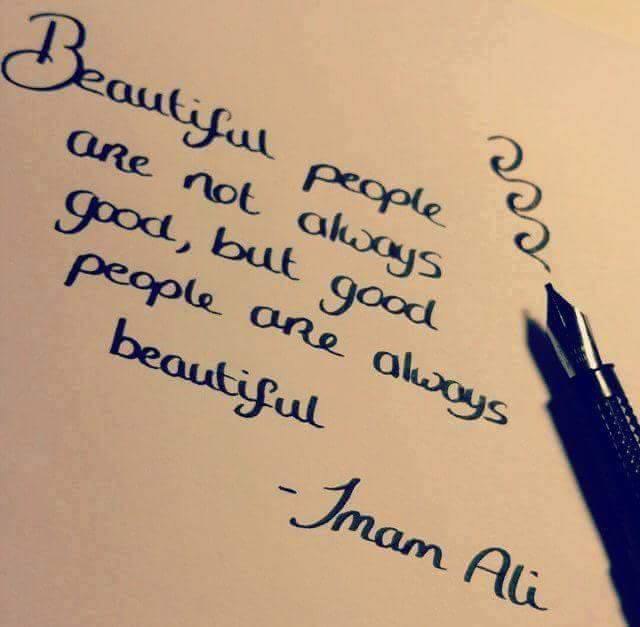 Beautiful people
are not always
good, but good
people are always
beautiful
- Imam Ali